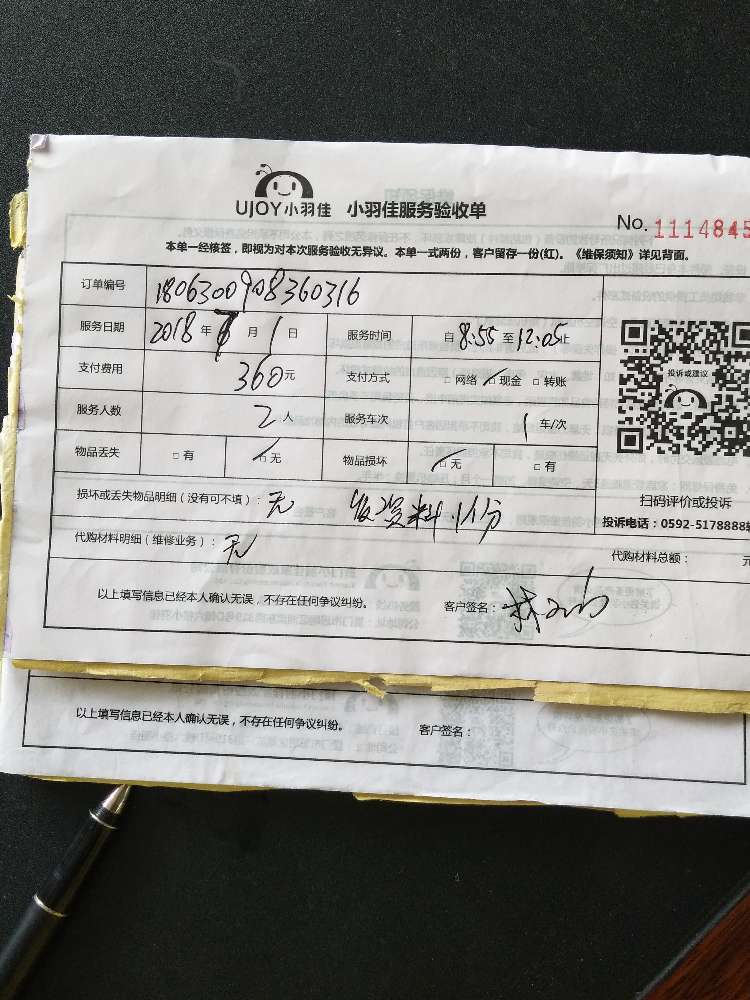 UJOY小羽佳 小羽佳服务验收单
No. 1114845
本单一经核签，即视为对本次服务验收无异议。本单一式两份，客户留存一份(红)。《维保须知》详见背面。
订单编号 1806300908360316
服务日期 2018 年 7 月 1 日 服务时间 自 8:55 至 12:05 止
支付费用 360 元 支付方式 □ 网络 ☑ 现金 □ 转账
服务人数 2 人 服务车次 1 车/次
物品丢失 □ 有 ☑ 无 物品损坏 ☑ 无 □ 有
投诉或建议
扫码评价或投诉
投诉电话：0592-5178888转
损坏或丢失物品明细（没有可不填）：无 发资料1份
代购材料明细（维修业务）：无
代购材料总额： 元
以上填写信息已经本人确认无误，不存在任何争议纠纷。 客户签名：
以上填写信息已经本人确认无误，不存在任何争议纠纷。 客户签名：